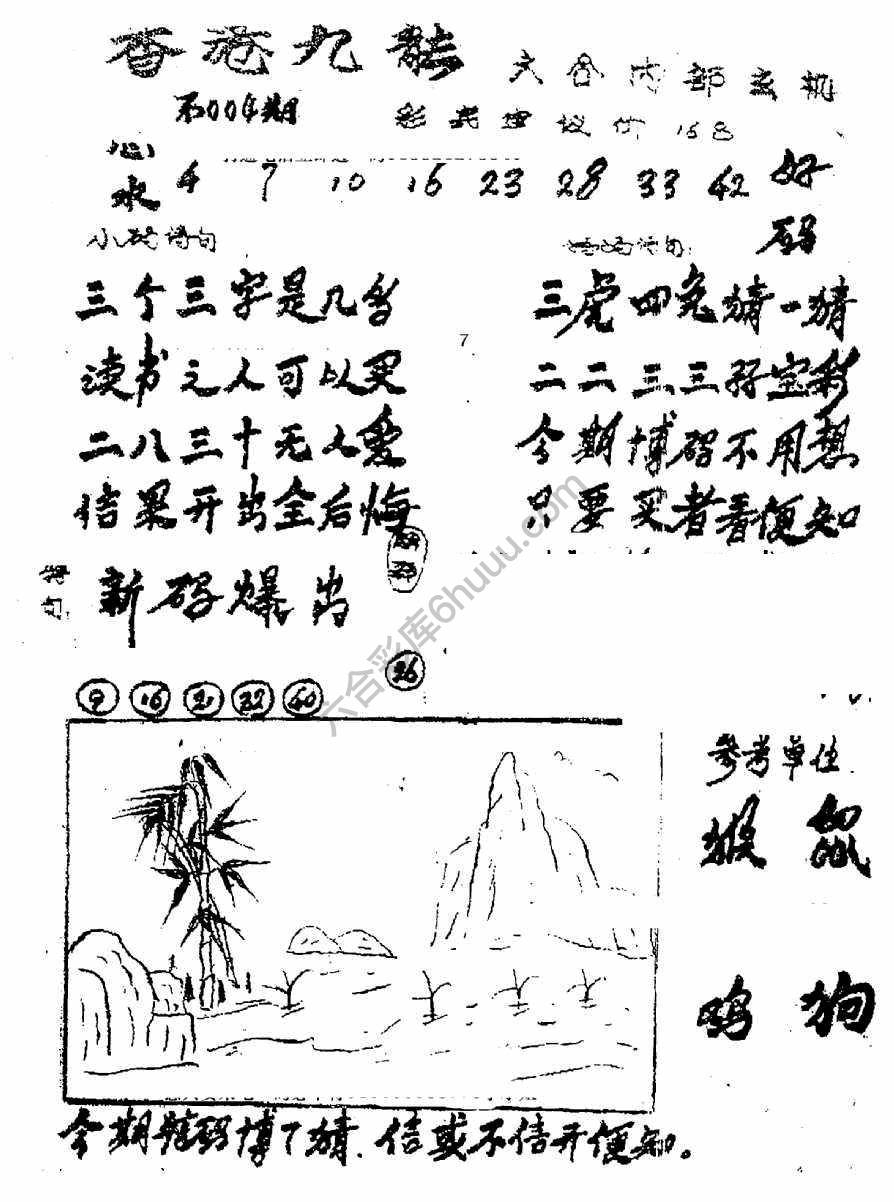 香港九龙 六合内部玄机
第004期 彩民建议价168
心水 4 7 10 16 23 28 33 42 好码
小码诗句
诗句:
三个三字是几台
读书之人可以买
二八三十无人爱
结果开出全后悔
三虎四兔猜一猜
7
二二三三好宝彩
今期博码不用想
只要买者看便知
特句:
新码爆出
9 16 21 32 40 26
参考单位
猴 鼠
鸡 狗
今期特码博了猜.信或不信开便知。
六合彩库6huuu.com